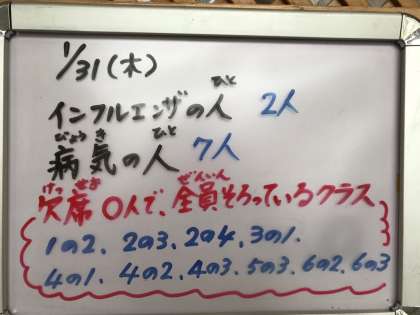 1/31(木)
インフルエンザの人 2人
病気の人 7人
欠席0人で、全員そろっているクラス
1の2、2の3、2の4、3の1、
4の1、4の2、4の3、5の3、6の2、6の3